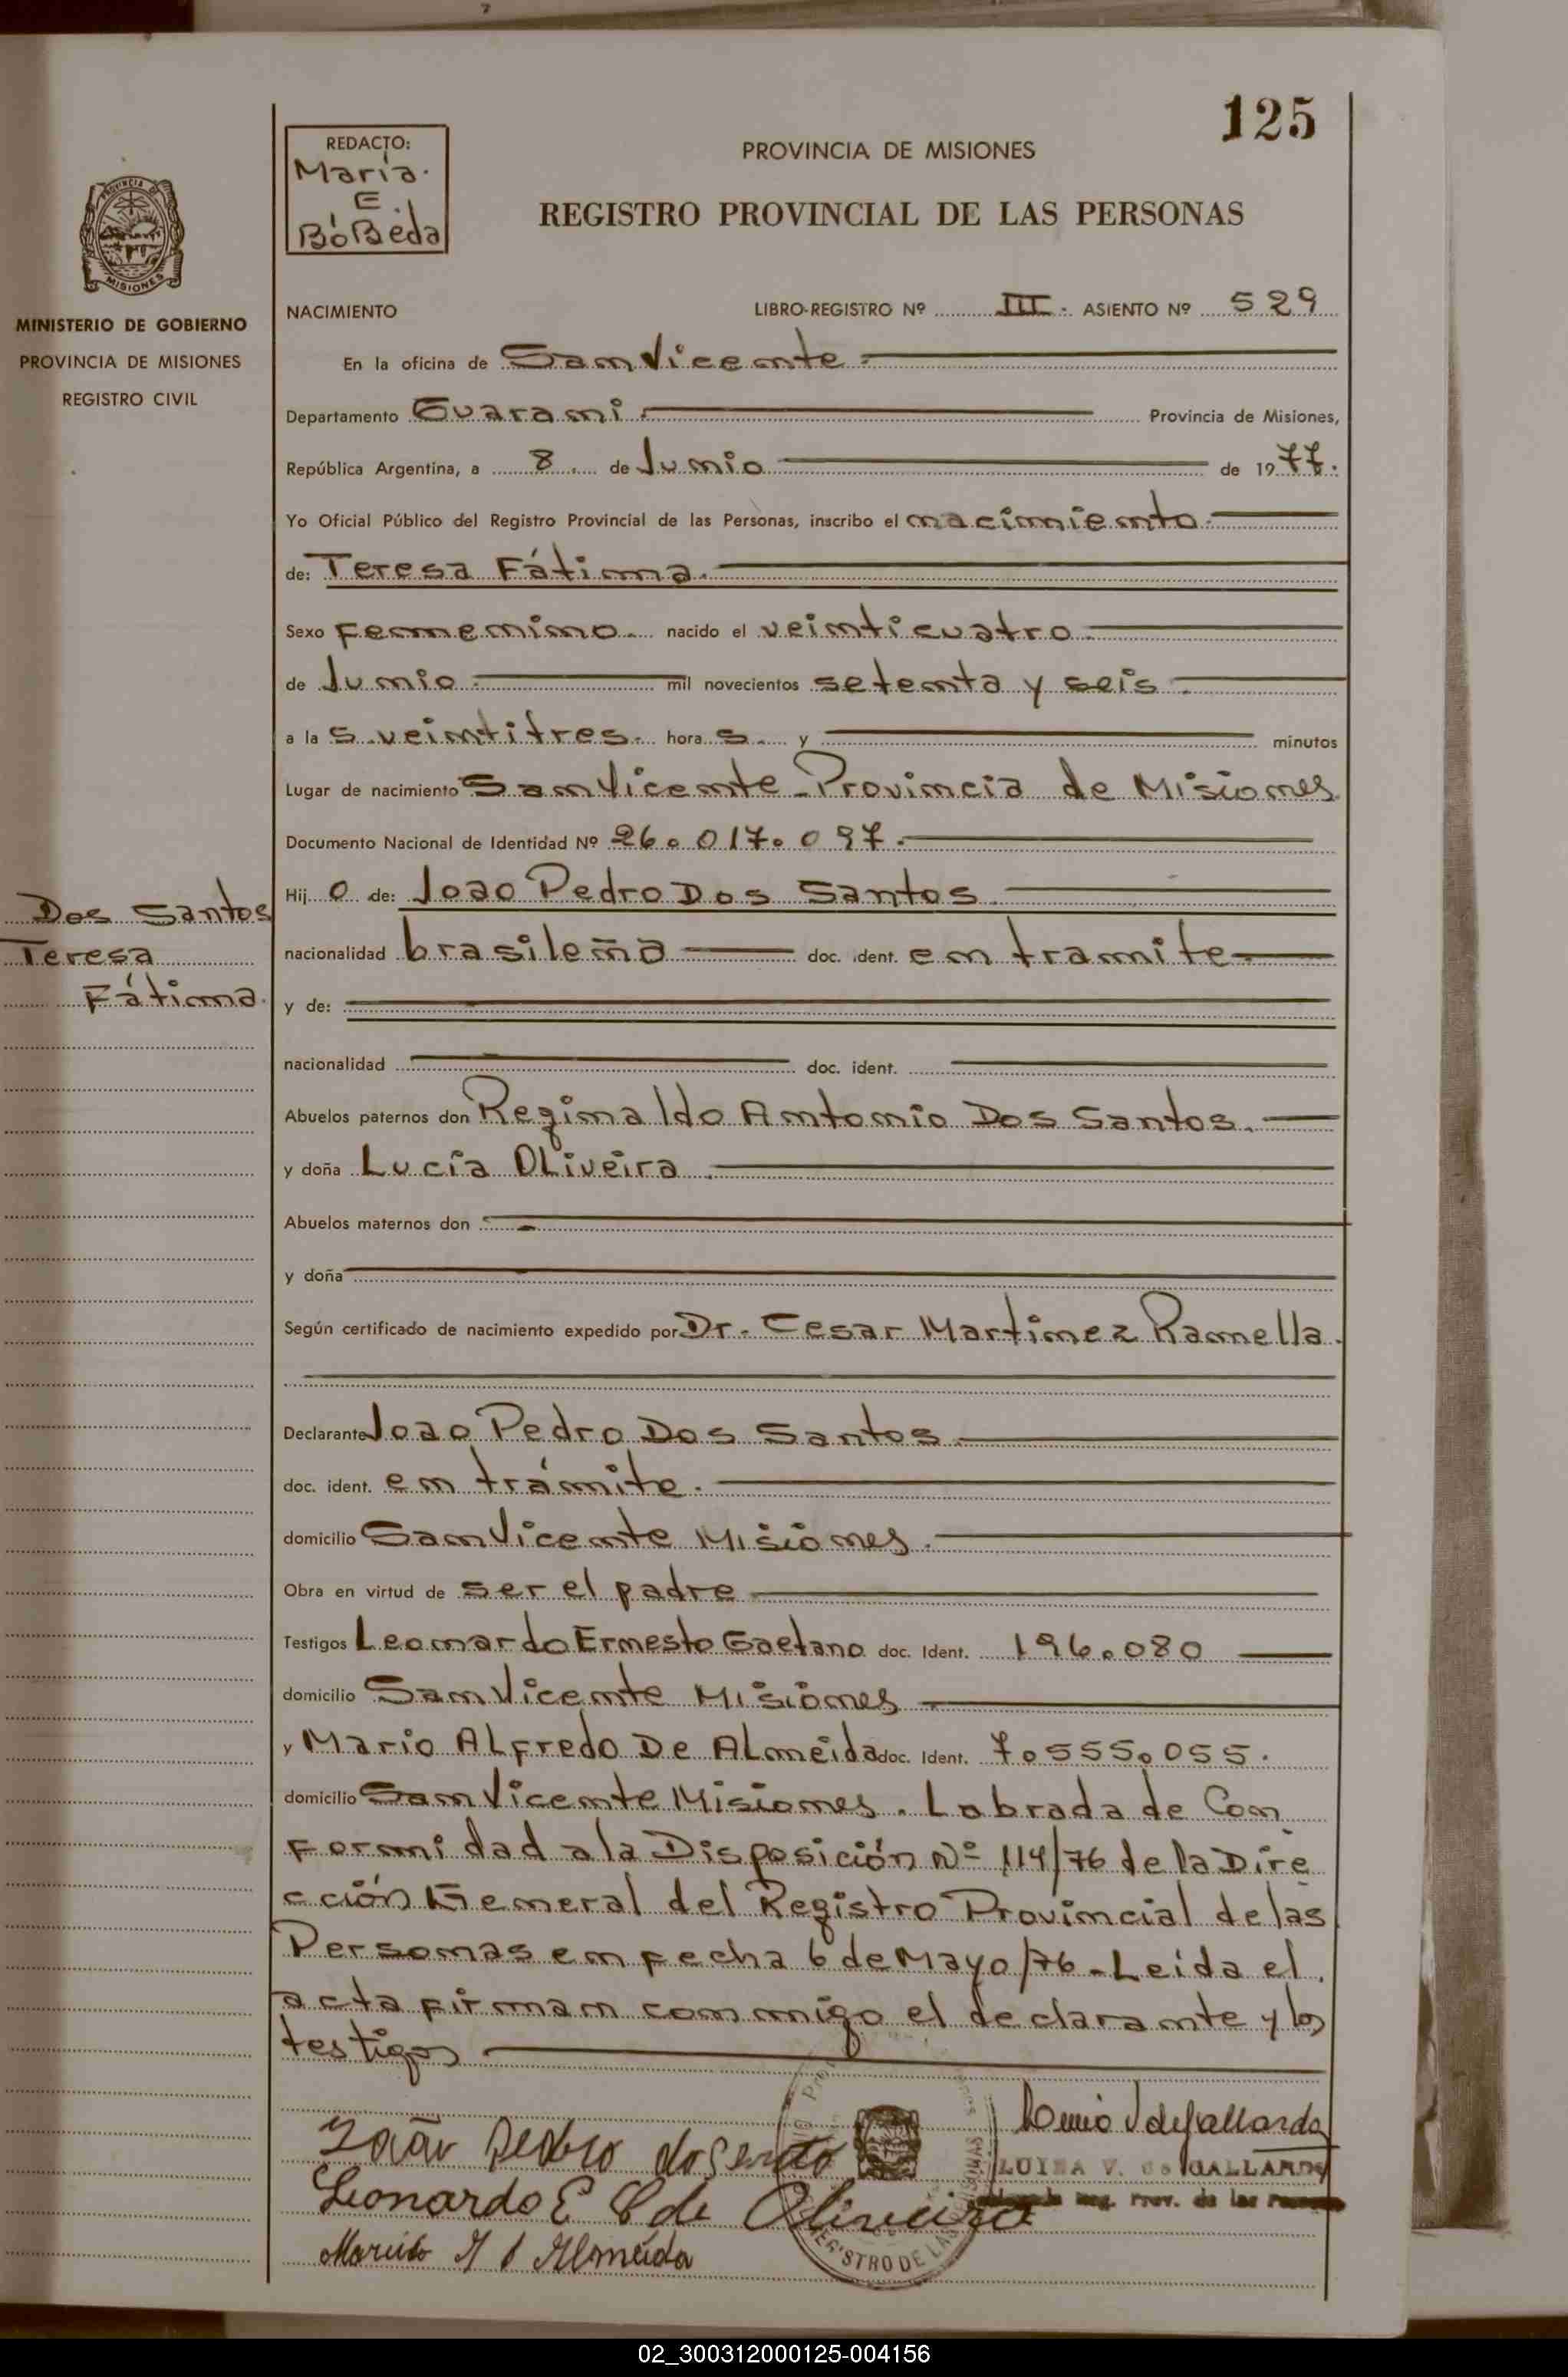 125
REDACTO:
María
E.
BóBeda
PROVINCIA DE MISIONES
REGISTRO PROVINCIAL DE LAS PERSONAS
PROVINCIA DE
MISIONES
MINISTERIO DE GOBIERNO
PROVINCIA DE MISIONES
REGISTRO CIVIL
NACIMIENTO LIBRO-REGISTRO Nº III. ASIENTO Nº 529
En la oficina de San Vicente
Departamento Guaraní Provincia de Misiones,
República Argentina, a 8 de Junio de 1977.
Yo Oficial Público del Registro Provincial de las Personas, inscribo el nacimiento
de: Teresa Fátima.
Sexo femenino. nacido el veinticuatro
de Junio mil novecientos setenta y seis
a las veintitres hora s. y minutos
Lugar de nacimiento San Vicente - Provincia de Misiones
Documento Nacional de Identidad Nº 26.017.097.
Hij o de: Joao Pedro Dos Santos
nacionalidad brasileña doc. ident. en tramite
y de:
nacionalidad doc. ident.
Abuelos paternos don Reginaldo Antonio Dos Santos.
y doña Lucía Oliveira
Abuelos maternos don
y doña
Según certificado de nacimiento expedido por Dr. Cesar Martinez Ramella.
Declarante Joao Pedro Dos Santos
doc. ident. en trámite.
domicilio San Vicente Misiones.
Obra en virtud de ser el padre
Testigos Leonardo Ernesto Gaetano doc. Ident. 196.080
domicilio San Vicente Misiones
y Mario Alfredo De Almeida doc. Ident. 7.555.055.
domicilio San Vicente Misiones. Labrada de Con
formidad a la Disposición Nº 114/76 de la Dire
cción General del Registro Provincial de las
Personas en fecha 6 de Mayo/76 - Leída el
acta firman conmigo el declarante y los
testigos
Dos Santos
Teresa
Fátima.
João Pedro dos
LUISA V. de GALLARDO
Reg. Prov. de las
Leonardo E de Oliveira
Almeida
REGISTRO DE LAS
02_300312000125-004156